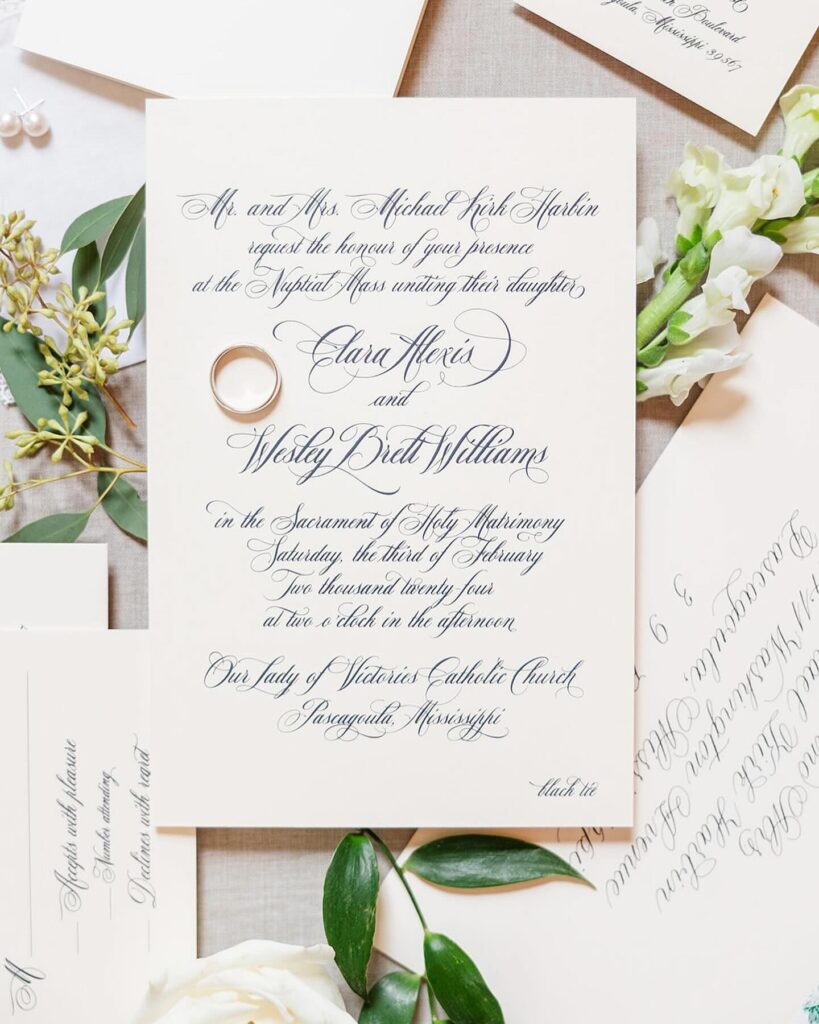 Boulevard
Mississippi 39567
Mr. and Mrs. Michael Kirk Harbin
request the honour of your presence
at the Nuptial Mass uniting their daughter
Clara Alexis
and
Wesley Brett Williams
in the Sacrament of Holy Matrimony
Saturday, the third of February
Two thousand twenty-four
at two o'clock in the afternoon
Our Lady of Victories Catholic Church
Pascagoula, Mississippi
black tie
M
Accepts with pleasure
Number attending
Declines with regret
Kirk Harbin
Washington Avenue
Pascagoula,
3 9